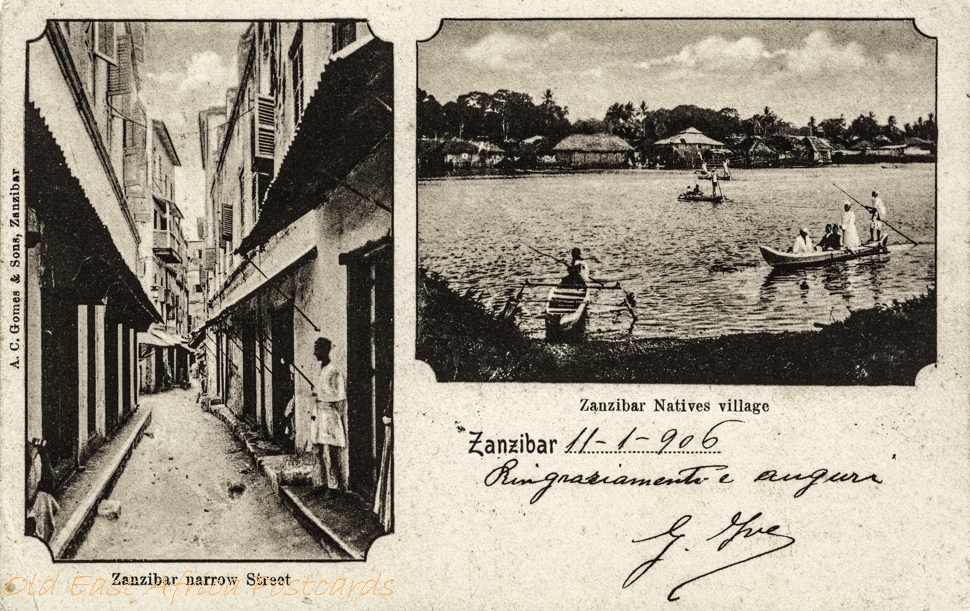 A. C. Gomes & Sons, Zanzibar
Zanzibar Natives village
Zanzibar 11-1-906
Ringraziamento e auguri
G.
Zanzibar narrow Street
Old East Africa Postcards